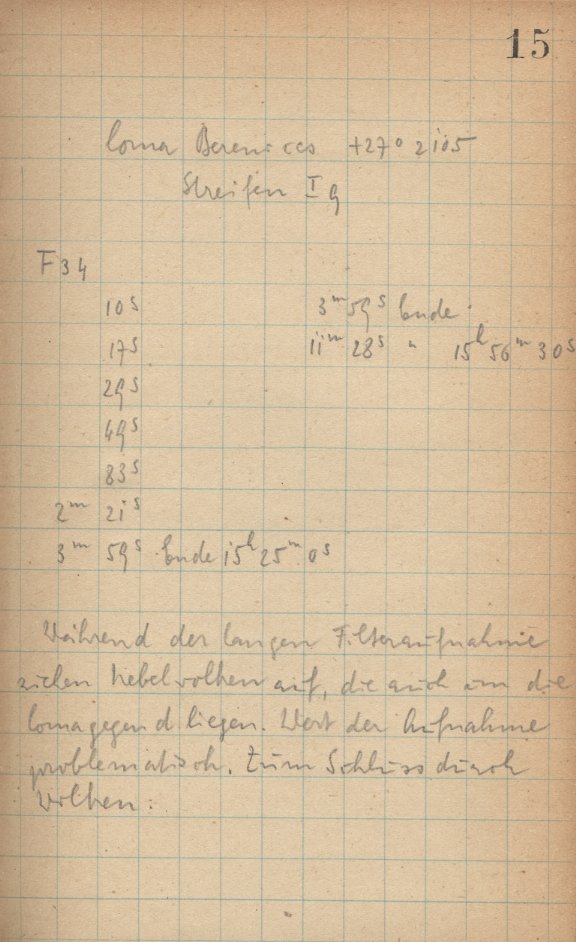 15
Coma Berenices +27° 2105
Streifen I g
F 34
10s 3m 59s Ende
17s 11m 28s " 15h 56m 30s
29s
49s
83s
2m 21s
3m 59s Ende 15h 25m 0s
Während der langen Filteraufnahme
ziehen Nebelwolken auf, die auch um die
Comagegend liegen. Wert der Aufnahme
problematisch. Zum Schluss durch
Wolken.